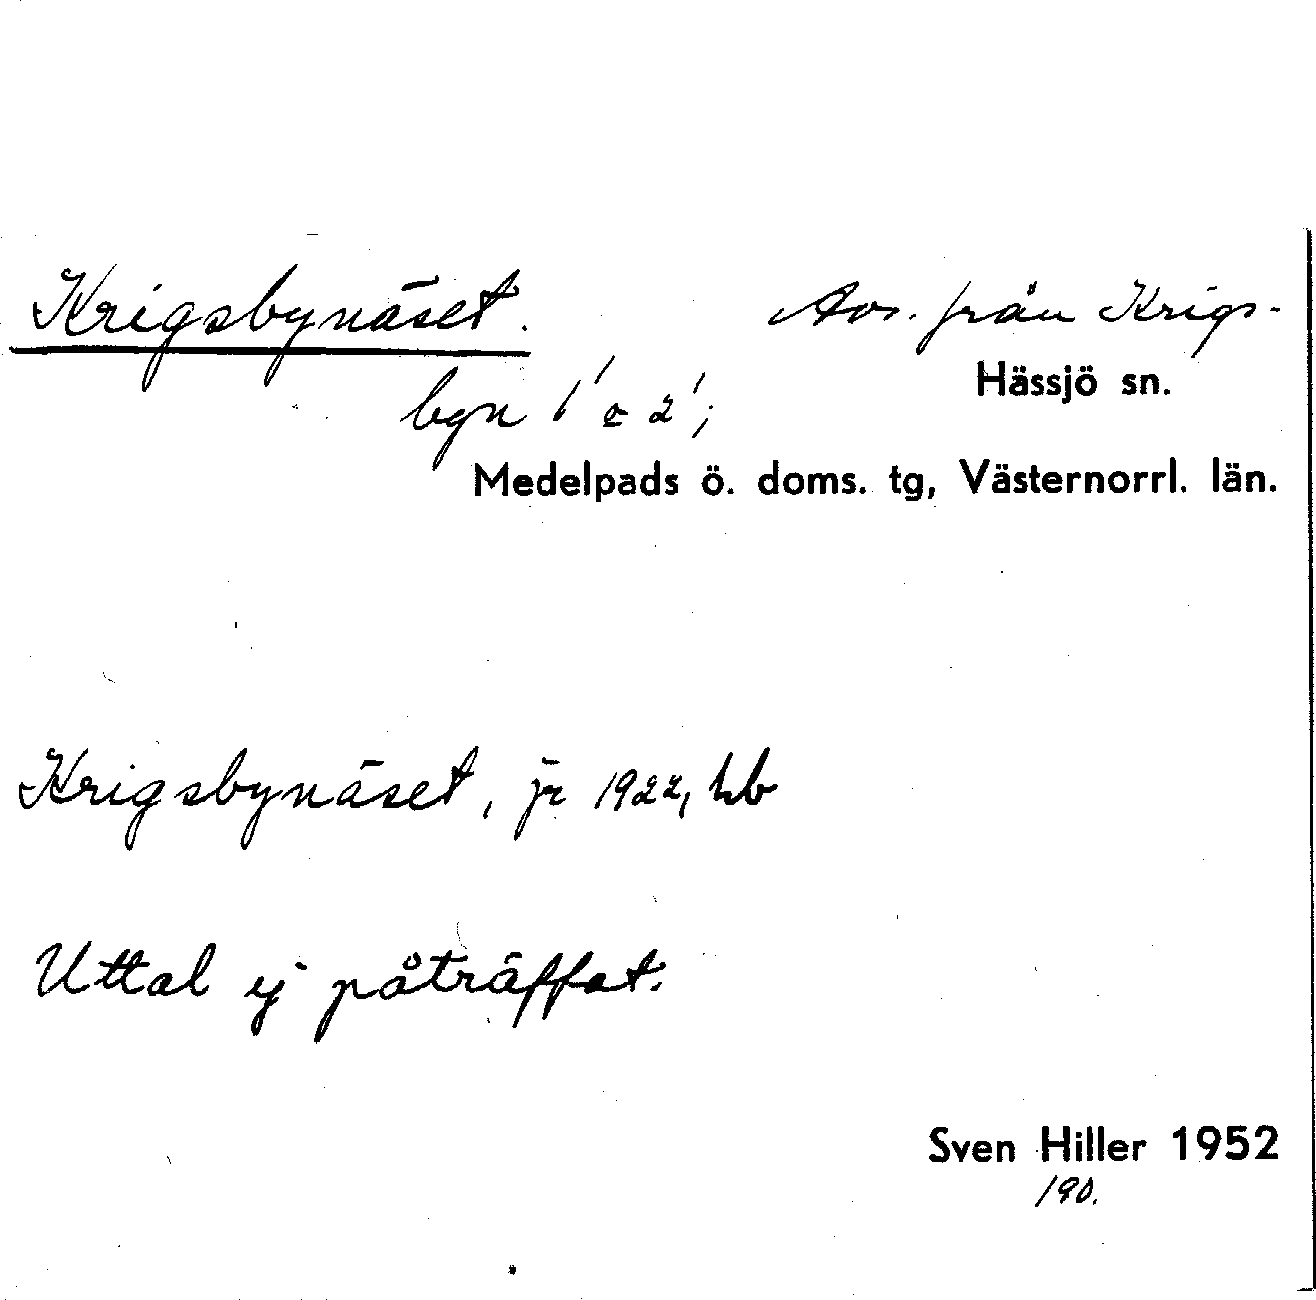 Krigsbynäset. Avs. från Krigs-
Hässjö sn.
byn 1' o 2';
Medelpads ö. doms. tg, Västernorrl. län.
Krigsbynäset, jr 1922, hb
Uttal ej påträffat.
Sven Hiller 1952
190.